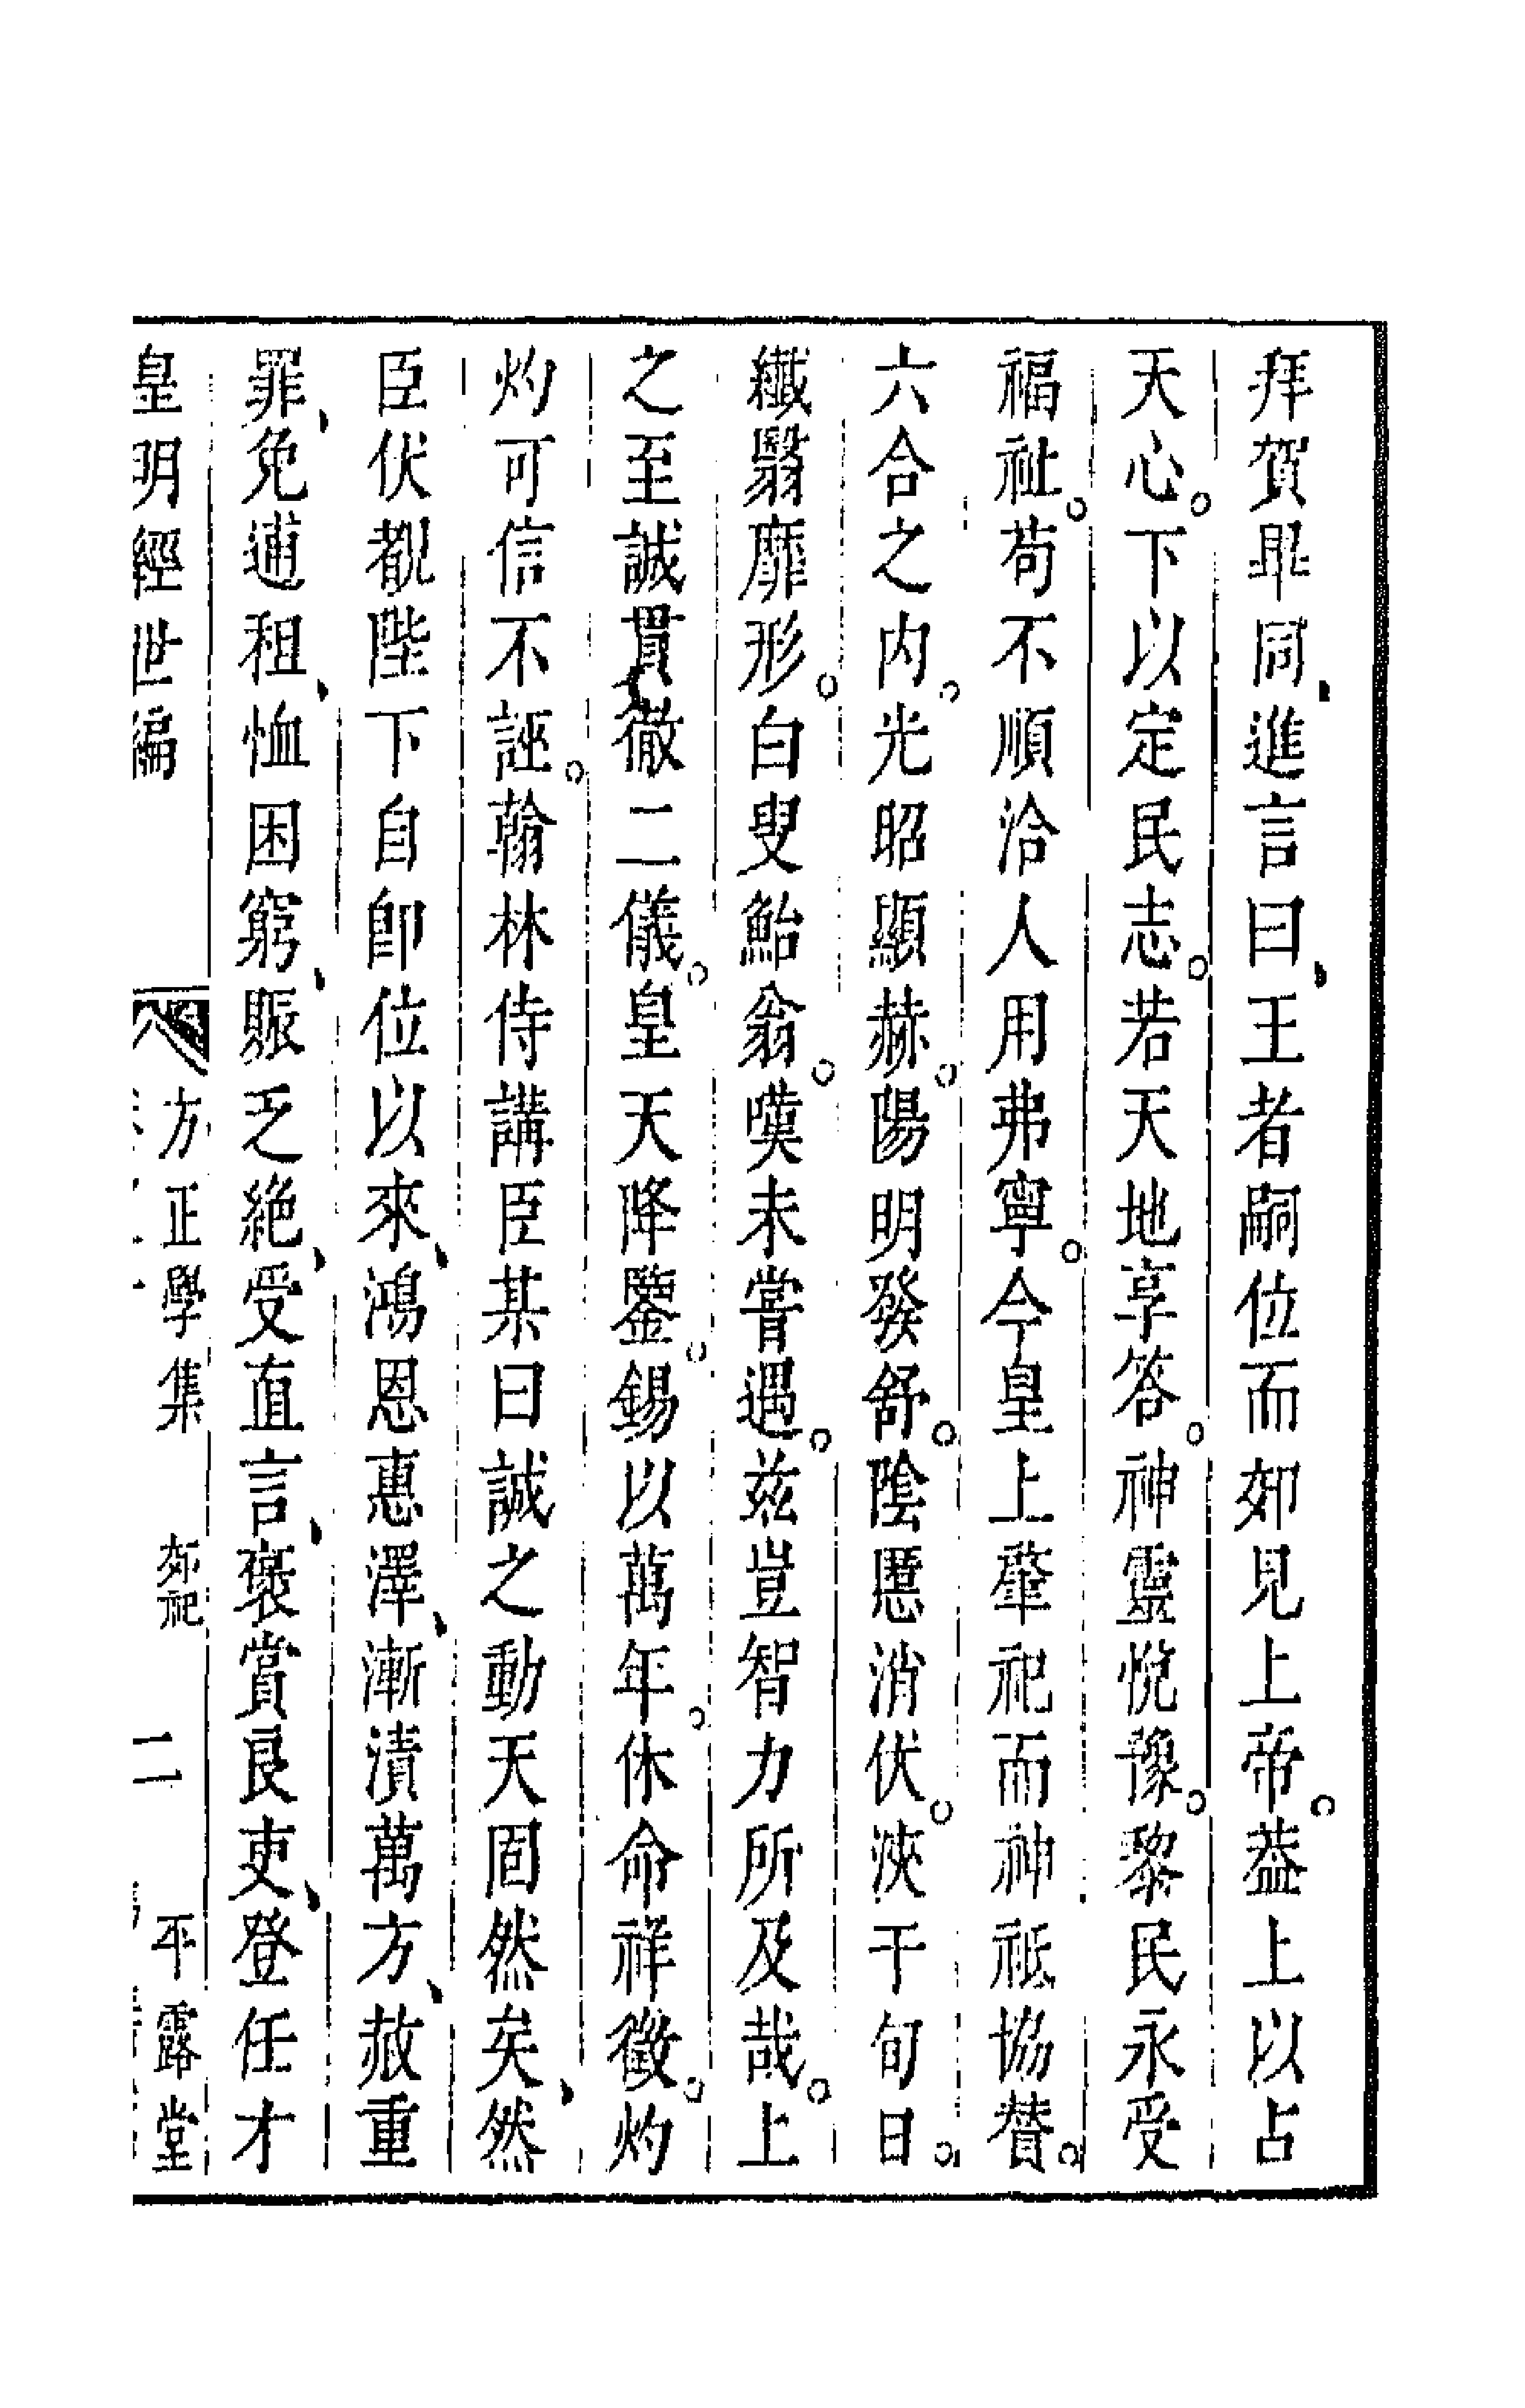 拜賀畢同進言曰王者嗣位而郊見上帝葢上以占
天心下以定民志若天地享答神靈悅豫黎民永受
福祉苟不順洽人用弗寧今皇上肇祀而神祗協賛
六合之内光昭顯赫陽明發舒陰慝消伏浹于旬日
纎翳靡形白叟鮐翁嘆未嘗遇兹豈智力所及哉上
之至誠貫徹二儀皇天降鑒錫以萬年休命祥徵灼
灼可信不誣翰林侍講臣某曰誠之動天固然矣然
臣伏覩陛下自卽位以來鴻恩惠澤漸漬萬方赦重
罪免逋租恤困窮賑乏絶受直言褒賞良吏登任才
皇明經世編 方正學集 郊祀 二 平露堂